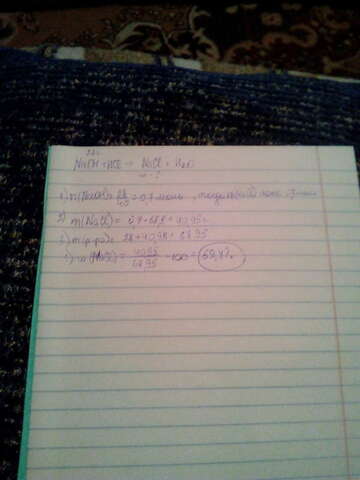 28г
NaOH + HCl → NaCl + H₂O
m - ?
1) n(NaOH) = 28/40 = 0,7 моль, тогда n(NaCl) тоже
2) m(NaCl) = 58,5 = 40,95г.
3) m(р-ра) = 28 + 40,95 = 68,95
4) ω(NaCl) = 40,95/68,95 · 100 = 59,4%